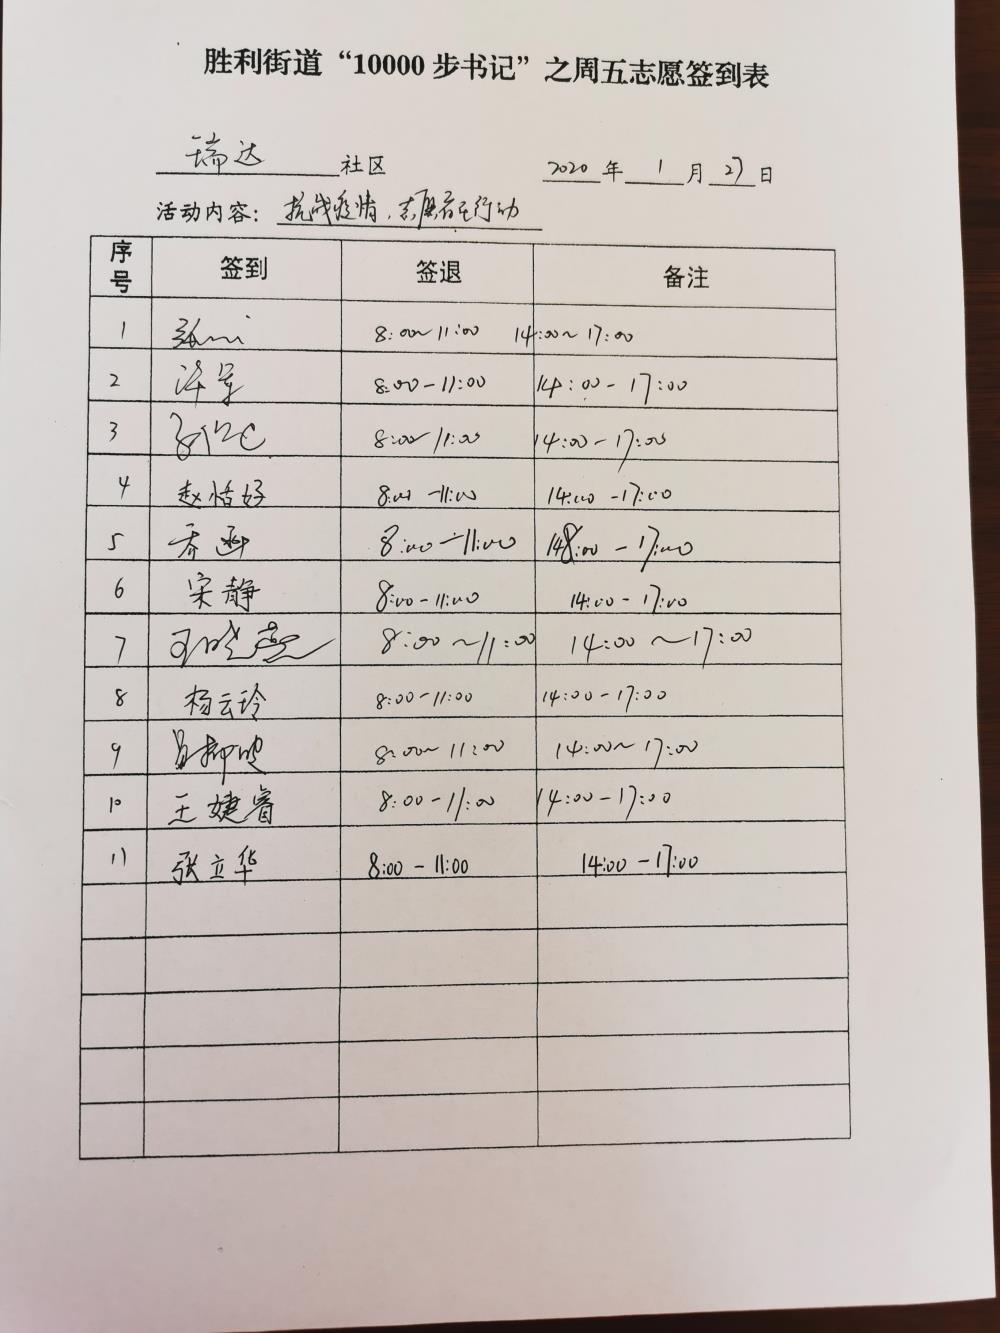 胜利街道“10000步书记”之周五志愿签到表
瑞达 社区 2020 年 1 月 27 日
活动内容: 抗战疫情,志愿者在行动
序号 签到 签退 备注
1 8:00~11:00 14:00~17:00
2 8:00-11:00 14:00-17:00
3 8:00-11:00 14:00-17:00
4 赵恬好 8:00-11:00 14:00-17:00
5 乔函 8:00-11:00 148:00-17:00
6 宋静 8:00-11:00 14:00-17:00
7 王晓燕 8:00~11:00 14:00~17:00
8 杨云玲 8:00-11:00 14:00-17:00
9 8:00~11:00 14:00~17:00
10 王婕睿 8:00-11:00 14:00-17:00
11 张立华 8:00-11:00 14:00-17:00